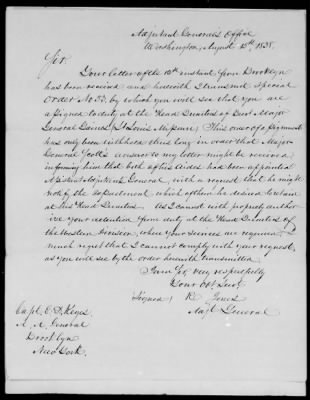 Adjutant General's Office
Washington, August 15th 1838.
Sir,
Your letter of the 12th instant from Brooklyn
has been received and herewith I transmit Special
Order No 53. by which you will see that you are
assigned to duty at the Head Quarters of Bevt Major
General Gaines, St Louis Missouri. This order of assignment
has only been withheld thus long in order that Major
General Scott's answer to my letter might be received,
informing him that both of his Aides had been appointed
Assistant Adjutants General, with a request that he might
notify the Department which of them he desired to retain
at his Head Quarters. As I cannot with propriety author-
ize your detention from duty at the Head Quarters of
the Western Division, where your services are required I
much regret that I cannot comply with your request,
as you will see by the order herewith transmitted.
I am Sir, very respectfully
Your Obt Servt
Signed, R. Jones
Adjt General
Capt. E. D. Keyes
A. A. General
Brooklyn
New York.